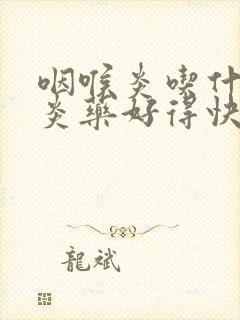 咽喉炎喫什
炎藥好得快
龍斌